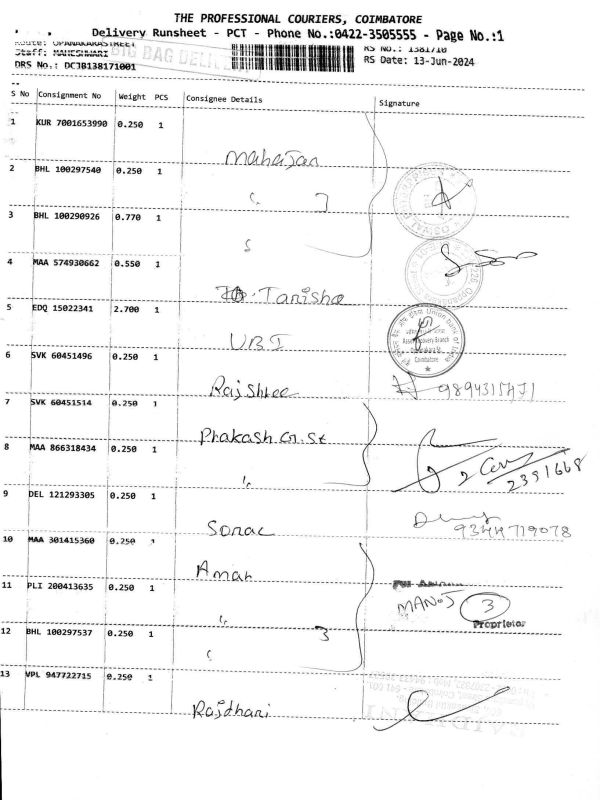 THE PROFESSIONAL COURIERS, COIMBATORE
Delivery Runsheet - PCT - Phone No.:0422-3505555 - Page No.:1
Route: OPANAKARASTREET
RS No.: 1381710
Staff: MAHESHWARI
BIG BAG DELIVERY
RS Date: 13-Jun-2024
DRS No.: DCJB138171001
S No Consignment No Weight PCS Consignee Details Signature
1 KUR 7001653990 0.250 1 Mahajan
2 BHL 100297540 0.250 1 " ]
3 BHL 100290926 0.770 1
4 MAA 574930662 0.550 1 Tanisha
5 EDQ 15022341 2.700 1 UBI
Union Bank of India
Asset Recovery Branch
Coimbatore
6 SVK 60451496 0.250 1 Rajshree
7 SVK 60451514 0.250 1 Prakash.G.St
8 MAA 866318434 0.250 1 "
2391668
9 DEL 121293305 0.250 1 Sonac 9344719078
10 MAA 301415360 0.250 1 Aman
11 PLI 200413635 0.250 1 " MANOJ 3
Proprietor
12 BHL 100297537 0.250 1 3
13 VPL 947722715 0.250 1 Rajdhani